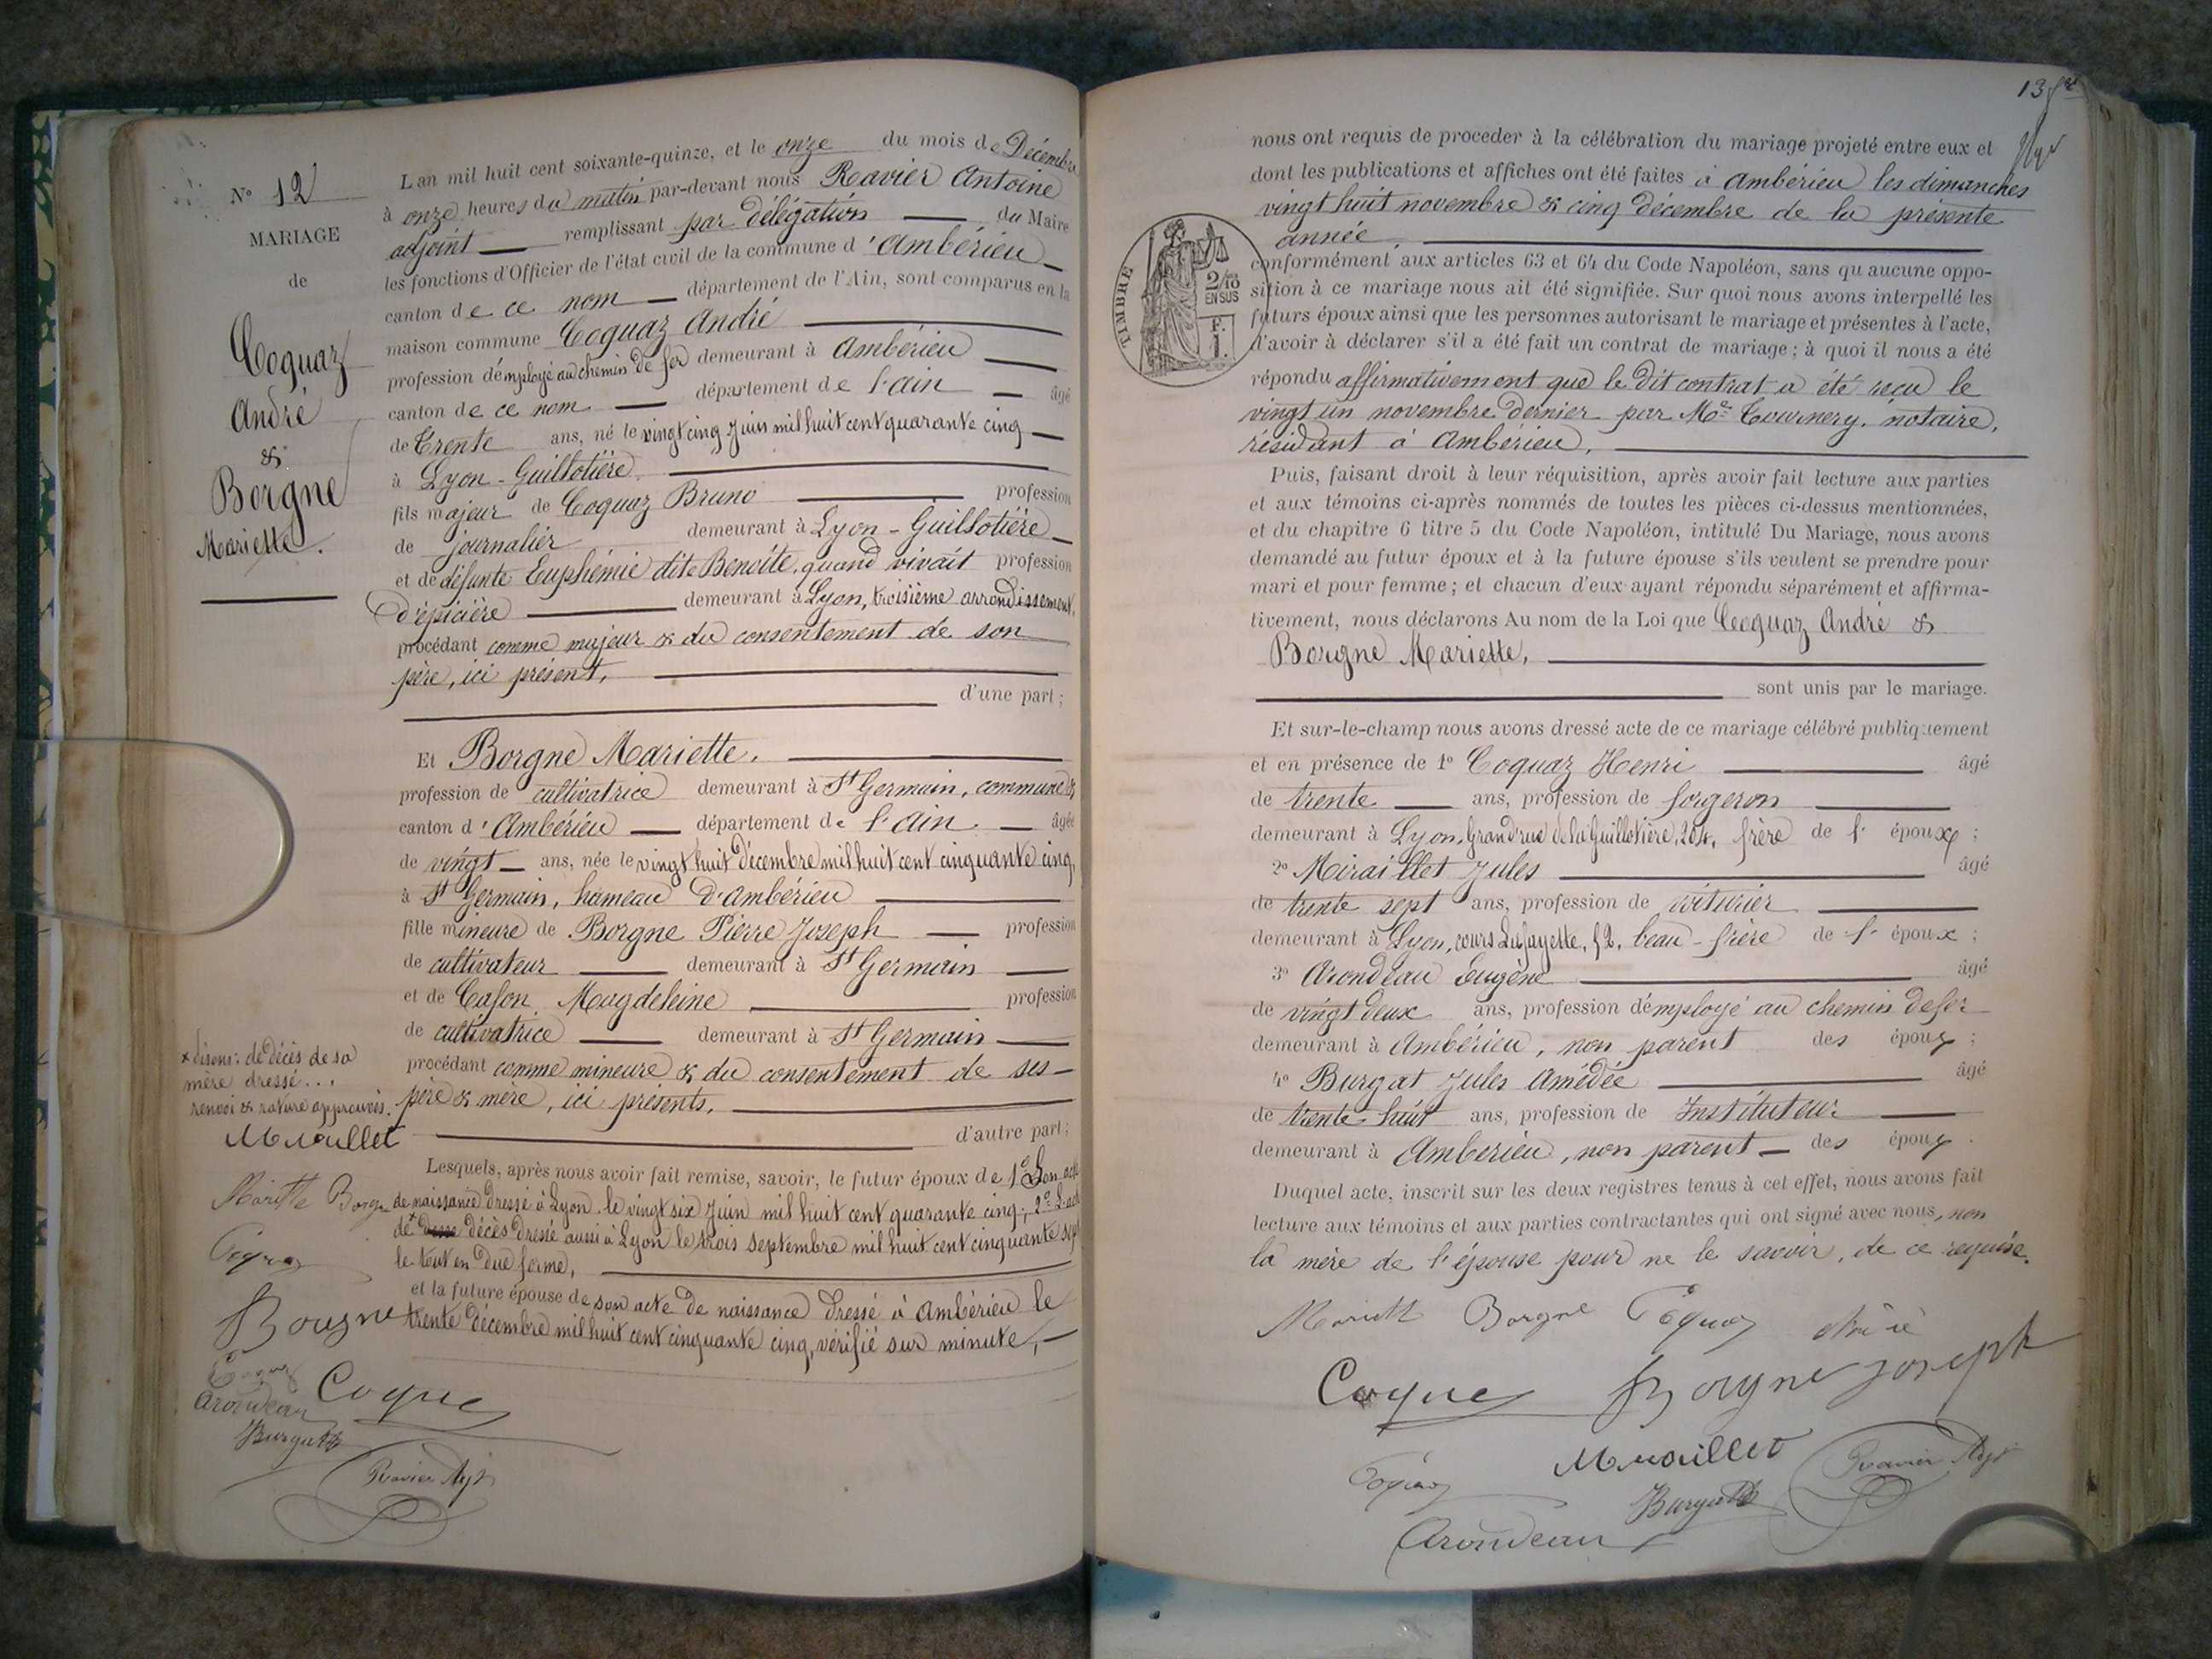 N° 12
MARIAGE
de
Coquaz
André
&
Borgne
Mariette.
L'an mil huit cent soixante-quinze, et le onze du mois de Décembre
à onze heures du matin par-devant nous Ravier Antoine
adjoint remplissant par délégation du Maire
les fonctions d'Officier de l'état civil de la commune d'Ambérieu
canton de ce nom département de l'Ain, sont comparus en la
maison commune Coquaz André
profession d'employé au chemin de fer demeurant à Ambérieu
canton de ce nom département de l'Ain âgé
de Trente ans, né le vingt cinq Juin mil huit cent quarante cinq
à Lyon-Guillotière
fils majeur de Coquaz Bruno profession
de journalier demeurant à Lyon-Guillotière
et de défunte Euphémie dite Benoîte, quand vivait profession
d'épicière demeurant à Lyon, troisième arrondissement,
procédant comme majeur & du consentement de son
père, ici présent,
d'une part;
Et Borgne Mariette.
profession de cultivatrice demeurant à St Germain, commune &
canton d'Ambérieu département de l'Ain. âgée
de vingt ans, née le vingt huit Décembre mil huit cent cinquante cinq,
à St Germain, hameau d'Ambérieu
fille mineure de Borgne Pierre Joseph profession
de cultivateur demeurant à St Germain
et de Cason Magdeleine profession
de cultivatrice demeurant à St Germain
procédant comme mineure & du consentement de ses
père & mère, ici présents,
d'autre part;
x disons: de décès de sa
mère dressé...
renvoi & rature approuvés.
Miraillet
Mariette Borgne
Coquaz
Borgne
Coquaz
Coquaz
Arondeau
Burgat
Ravier Adjt
Lesquels, après nous avoir fait remise, savoir, le futur époux de 1° Son acte
de naissance dressé à Lyon le vingt six Juin mil huit cent quarante cinq; 2° L'acte
de x décès dressé aussi à Lyon le trois Septembre mil huit cent cinquante sept
le tout en due forme,
et la future épouse de son acte de naissance dressé à Ambérieu le
trente Décembre mil huit cent cinquante cinq, vérifié sur minute,
13
nous ont requis de proceder à la célébration du mariage projeté entre eux et
dont les publications et affiches ont été faites à Ambérieu les dimanches
vingt huit novembre & cinq décembre de la présente
année,
TIMBRE
2/10
EN SUS
F.
1.
conformément aux articles 63 et 64 du Code Napoléon, sans qu'aucune oppo-
sition à ce mariage nous ait été signifiée. Sur quoi nous avons interpellé les
futurs époux ainsi que les personnes autorisant le mariage et présentes à l'acte,
d'avoir à déclarer s'il a été fait un contrat de mariage; à quoi il nous a été
répondu affirmativement que le dit contrat a été reçu le
vingt un novembre dernier par Me Tournery, notaire,
résidant à Ambérieu,
Puis, faisant droit à leur réquisition, après avoir fait lecture aux parties
et aux témoins ci-après nommés de toutes les pièces ci-dessus mentionnées,
et du chapitre 6 titre 5 du Code Napoléon, intitulé Du Mariage, nous avons
demandé au futur époux et à la future épouse s'ils veulent se prendre pour
mari et pour femme; et chacun d'eux ayant répondu séparément et affirma-
tivement, nous déclarons Au nom de la Loi que Coquaz André &
Borgne Mariette,
sont unis par le mariage.
Et sur-le-champ nous avons dressé acte de ce mariage célébré publiquement
et en présence de 1° Coquaz Henri âgé
de trente ans, profession de forgeron
demeurant à Lyon, Grand'rue de la Guillotière, 204, frère de l'époux;
2° Miraillet Jules âgé
de trente sept ans, profession de voiturier
demeurant à Lyon, cours Lafayette, 52, beau-frère de l'époux;
3° Arondeau Eugène âgé
de vingt deux ans, profession d'employé au chemin de fer
demeurant à Ambérieu, non parent des époux;
4° Burgat Jules Amédée âgé
de trente-huit ans, profession de Instituteur
demeurant à Ambérieu, non parent des époux.
Duquel acte, inscrit sur les deux registres tenus à cet effet, nous avons fait
lecture aux témoins et aux parties contractantes qui ont signé avec nous, non
la mère de l'épouse pour ne le savoir, de ce requise.
Mariette Borgne Coquaz André
Coquaz Borgne Joseph
Coquaz Miraillet Ravier Adjt
Burgat
Arondeau